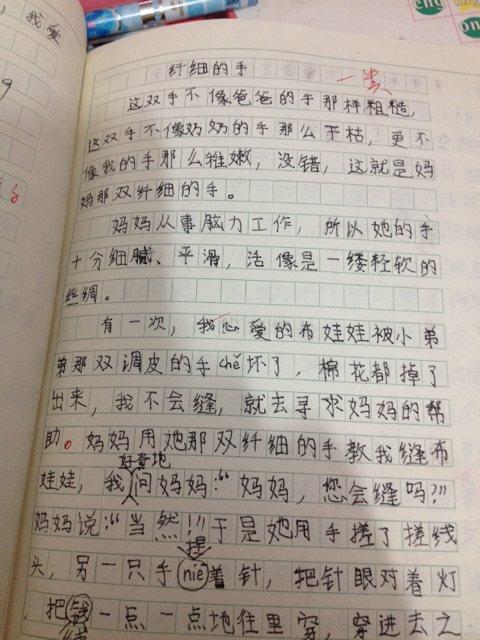 ，我爱
纤细的手
一类
这双手不像爸爸的手那样粗糙，
这双手不像奶奶的手那么干枯，更不
像我的手那么稚嫩，没错，这就是妈
妈那双纤细的手。
妈妈从事脑力工作，所以她的手
十分细腻、平滑，活像是一缕轻软的
丝绸。
有一次，我心爱的布娃娃被小弟
弟那双调皮的手chě坏了，棉花都掉了
出来，我不会缝，就去寻求妈妈的帮
助。妈妈用她那双纤细的手教我缝布
好奇地
娃娃，我问妈妈："妈妈，您会缝吗?!"
妈妈说："当然!!"于是她用手搓了搓线
捏
头，另一只手nié着针，把针眼对着灯
，把钱一点一点地往里穿，穿进去之
线